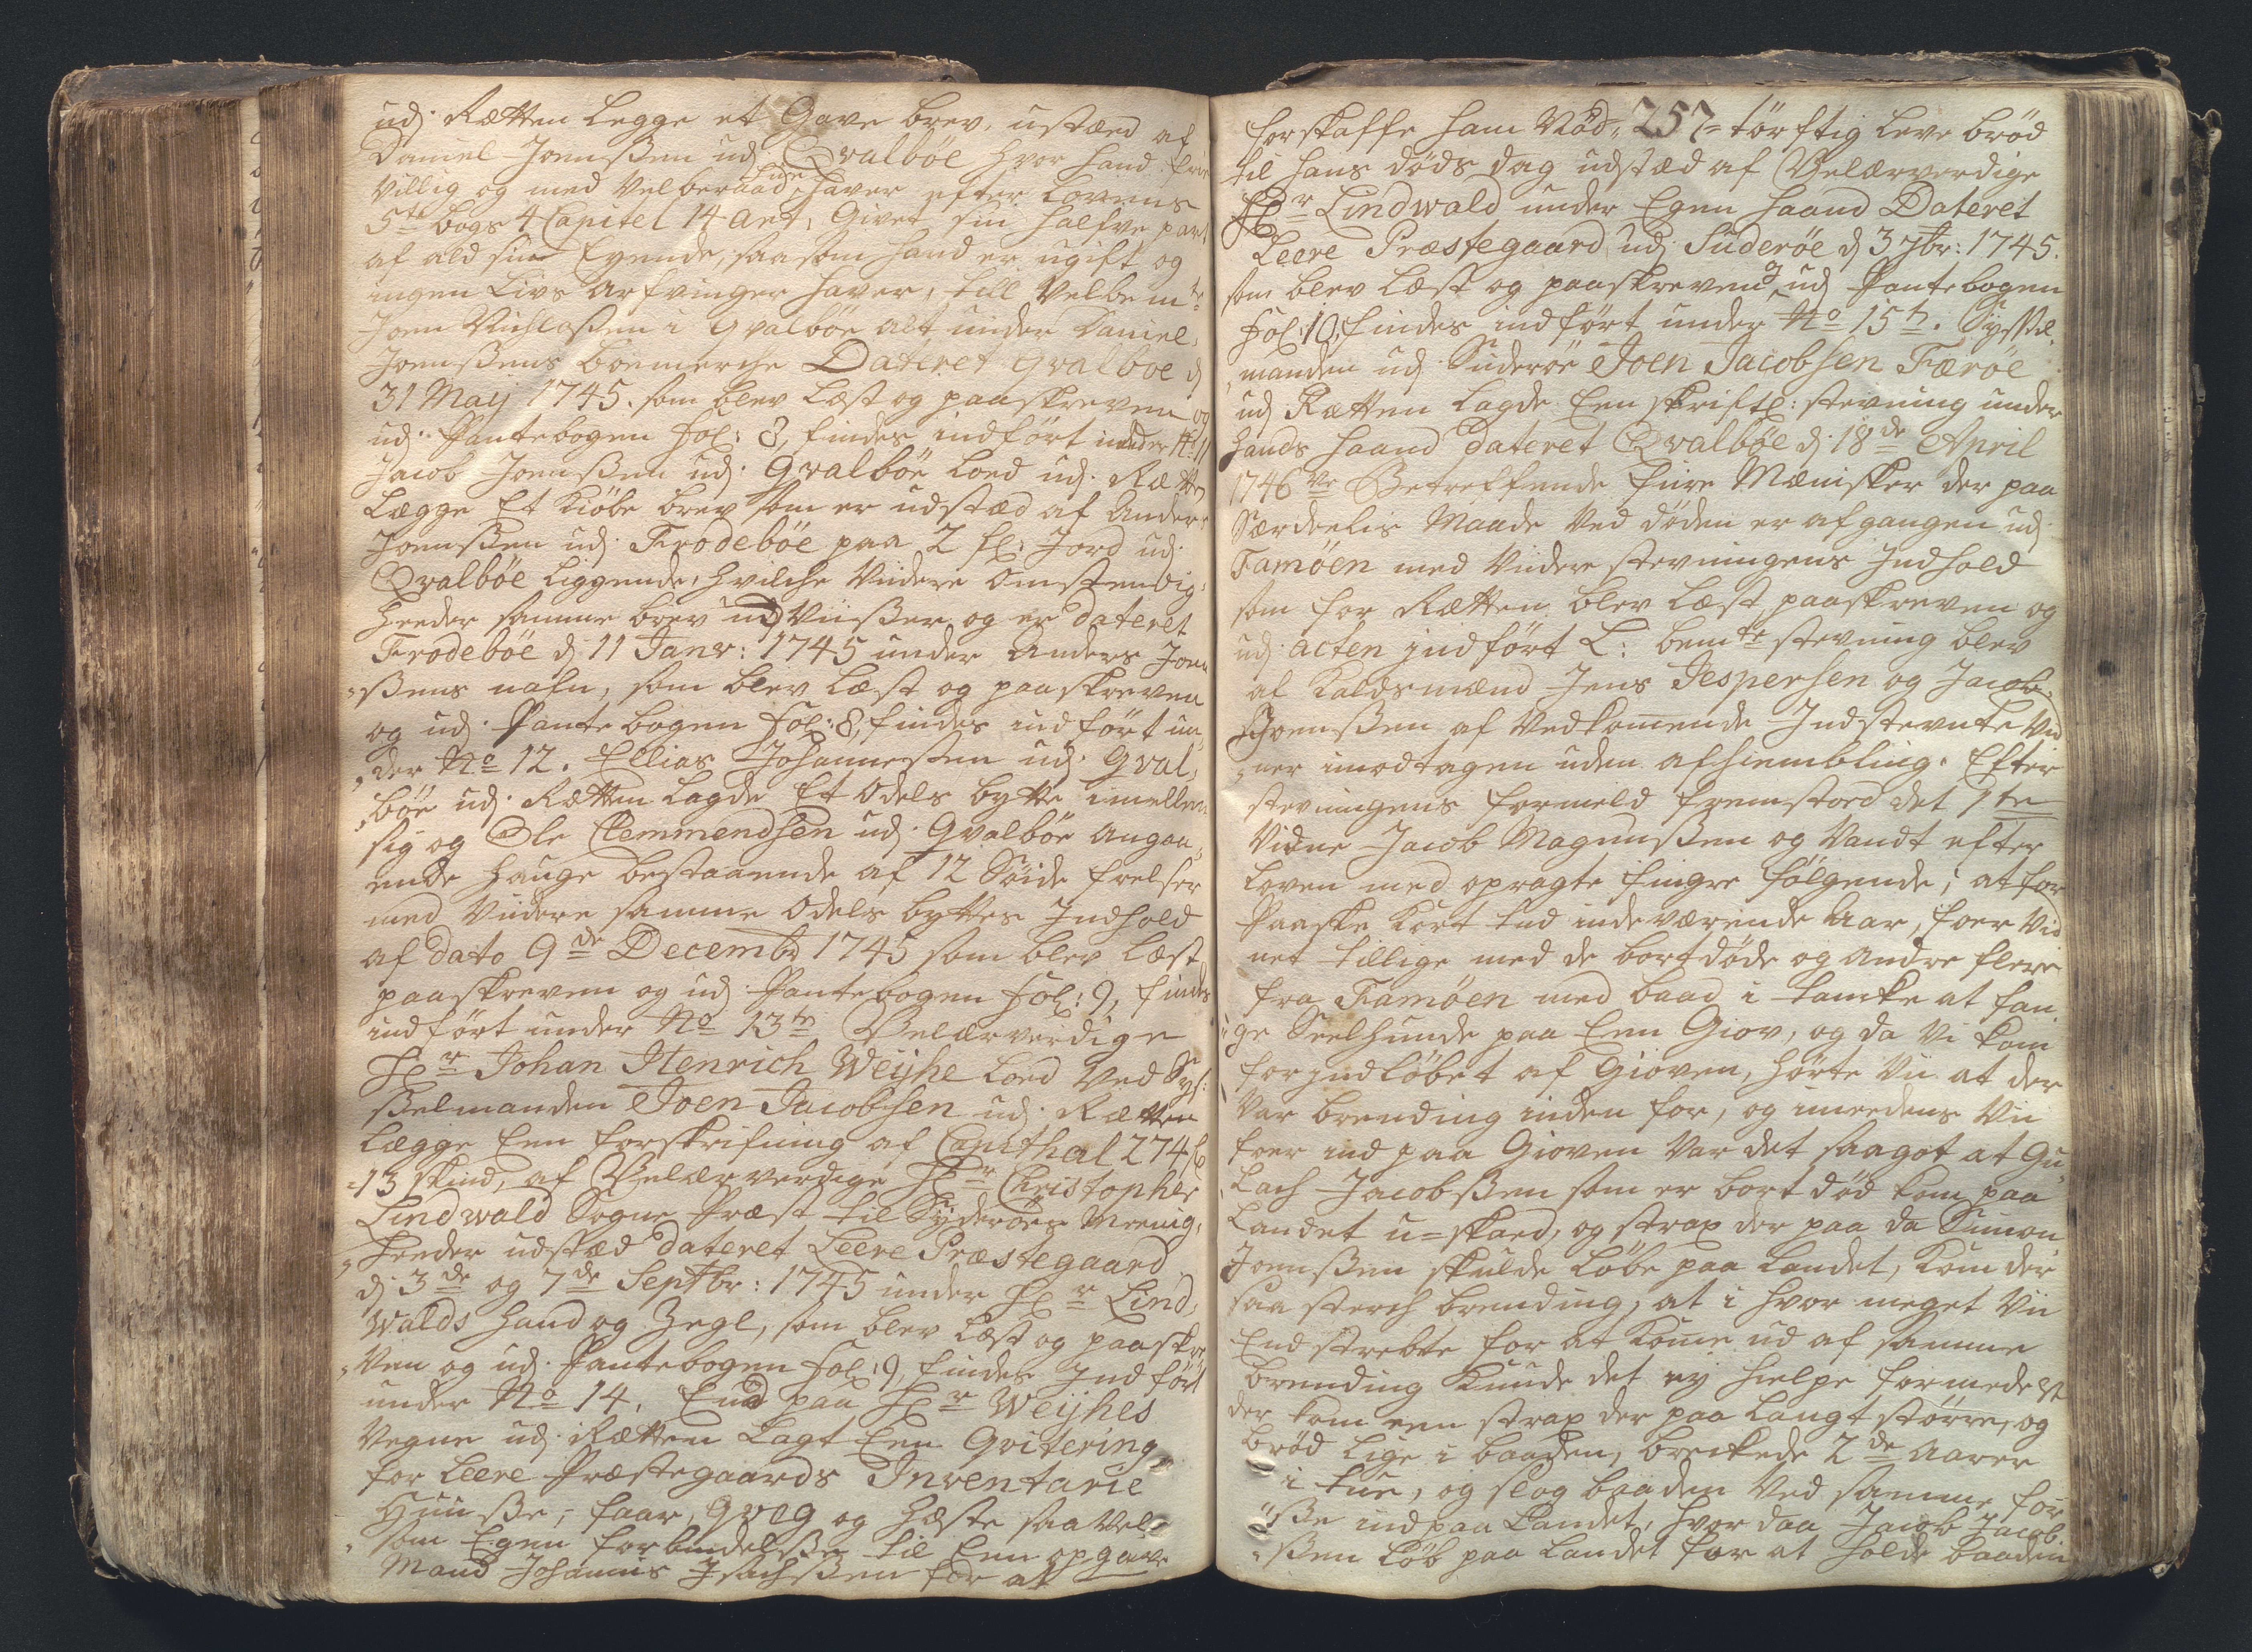 udj Rætten legge et Gave brev, ustæd af
Daniel Joenssen udj Qvalböe hvor hand frie
villig og med velberaad hue haver efter Lovens
5te bogs 4 Capitel 14 art, Givet sin halfve part
af ald sin Eyende, saasom hand er ugift og
ingen Livs Arfvinger haver, till Velbemte
Joen Nichlaßen i Qvalböe alt under Daniel
Joenßens boemerche Dateret Qvalboe d
31 Maij 1745. som blev Læst og paaskreven og
udj Pantebogen fol: 8, findes indfört under No 11
Jacob Joenßen udj Qvalböe loed udj Rætten
Lægge Et Kiöbe brev som er udstæd af Anders
Joenßen udj Frodeböe paa 2 gl: Jord udj
Qvalböe liggende, hvilche viidere omstendig,
heeder samme brev ud viißer og er dateret
Frodeböe d 11 Janr: 1745 under Anders Joen
=ßens nafn, som blev Læst og paaskreven
og udj Pantebogen fol: 8, findes indfört un,
,der No 12. Ellias Johanneßen udj Qval,
,böe udj Rætten Lagde Et Odels bytte imellem
sig og Ole Clemmendsen udj Qvalböe angaa,
ende Hauge bestaaende af 12 Söide frelser
med viidere samme Odels byttes Indhold
af dato 9de Decembr 1745 som blev Læst
paaskreven og udj Pantebogen fol: 9, findes
indfört under No 13te Velærverdige
Hr Johan Henrich Weijhe loed ved Sys:
ßelmanden Joen Jacobsen udj Rætten
Lægge Een forskrifning af Capithal 274 gl
=13 skind, af Velærverdige Hr Christopher
Lindwald Sogne Præst til Syderöes Meenig,
,heeder udstæd dateret Leere Præstegaard
d 3de og 7de Septbr: 1745 under Hr Lind,
Walds Hand og Zegl, som blev Læst og paaskre
,ven og udj Pantebogen fol: 9, findes Indfört
under No 14. End paa Hr Weijhes
Vegne udj Rætten Lagt Een Qvitering
for Leere Præstegaards Inventarie
Huuse, faar, qveg og Hæste saavel
som Egen forbindelße til Een opgave
Mand Johannis Isachßen for at
forskaffe ham Nöd, 257 = törftig leve bröd
til hans döds dag udstæd af Velærverdige
Hr Lindwald under Egen haand Dateret
Leere Præstegaard udj Suderöe d 3 7br: 1745.
som blev Læst og paaskreven og udj Pantebogen
fol: 10, findes indfört under No 15te. Syssel,
,manden udj Suderöe Joen Jacobsen Færöe
udj Rætten Lagde Een skriftl: stevning under
Hands Haand dateret Qvalböe d 18de April
1746ve Betreffende fiire Mænisker der paa
Særdeelis Maade ved döden er afgangen udj
Famöen med viidere stevningens Indhold
som for Rætten blev Læst, paaskreven og
udj acten indfört L: bemte stevning blev
af Kaldsmænd Jens Jespersen og Jacob
Joenßen af vedkomende Indstevnte Vid
,ner imodtagen uden afhiembling. Efter
stevningens formeld fremstoed det 1te
Vidne Jacob Magnußen og Vandt efter
loven med opragte fingre fölgende, at for
Paaske kort tid indeværende Aar, foer vid
net tillige med de bortdöde og andre flere
fra Famöen med baad i tancke at fan,
,ge Seelhunde paa Een Giov, og da vi kom
for Indlöbet af Gioven, hörte vii at der
var brending inden for, og imedens vii
foer ind paa Gioven var det saagot at Gu
,lach Jacobßen som er bort död kom paa
Landet u=skard, og strax der paa da Simon
Joenßen skulde löbe paa Landet, kom der
saa sterch brending, at i hvor meget vii
End strebte for at kome ud af samme
brending kunde det ey hielpe formedelst
der kom een strax der paa langt större, og
bröd lige i baaden, brekede 2de Aarer
i tue, og slog baaden ved samme for
ße ind paa Landet, hvor daa Jacob Jacob
=ßen Löb paa Landet for at holde baaden